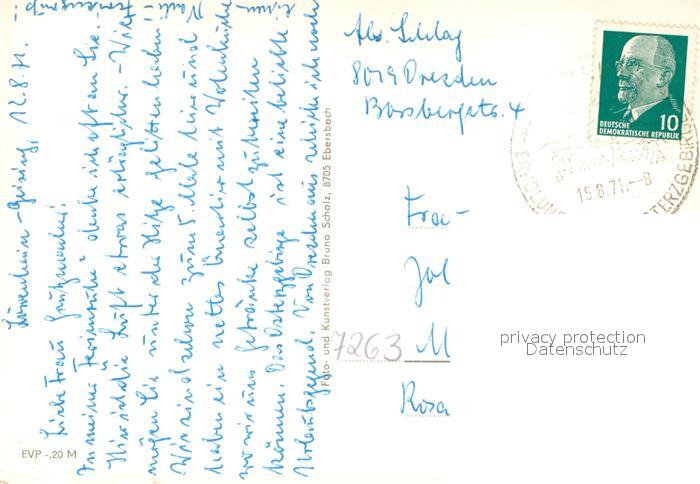 Löwenhain-Geising, 12.8.71.
Liebe Frau
In meiner "Ferienruhe" denke ich oft an Sie.
Hier ist die Luft etwas erträglicher. - Wie
mögen Sie unter der Hitze gelitten haben!
Wir sind schon zum 5. Male hier und
haben ein nettes Quartier mit Wohnküche
wo wir uns Getränke selbst zubereiten
können. Das Osterzgebirge ist eine beliebte
Urlaubsgegend. Von Dresden aus schicke ich noch
einen
Abs. Schlag
8019 Dresden
Bossbergstr. 4
Frau
M
Rosa
7263
DEUTSCHE
DEMOKRATISCHE REPUBLIK
10
15.8.71.--8
Foto- und Kunstverlag Bruno Scholz, 8705 Ebersbach
EVP -,20 M
privacy protection
Datenschutz